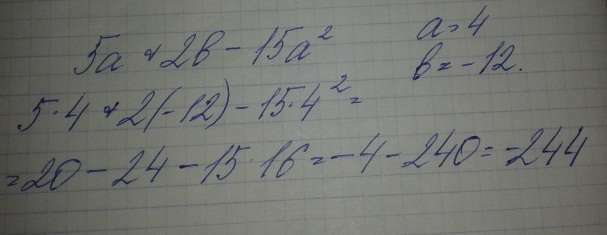 5a + 2b - 15a² a = 4
b = -12.
5·4 + 2(-12) - 15·4² =
= 20 - 24 - 15·16 = -4 - 240 = -244